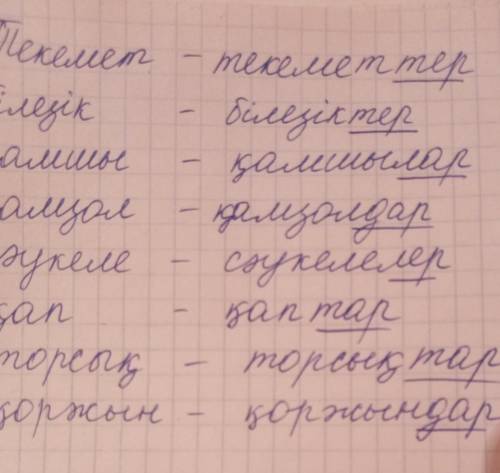 Текемет - текеметтер
ілезік - білезіктер
амшы - қамшылар
амзол - қамзолдар
әукеле - сәукелелер
қап - қаптар
торсық - торсықтар
қоржын - қоржындар